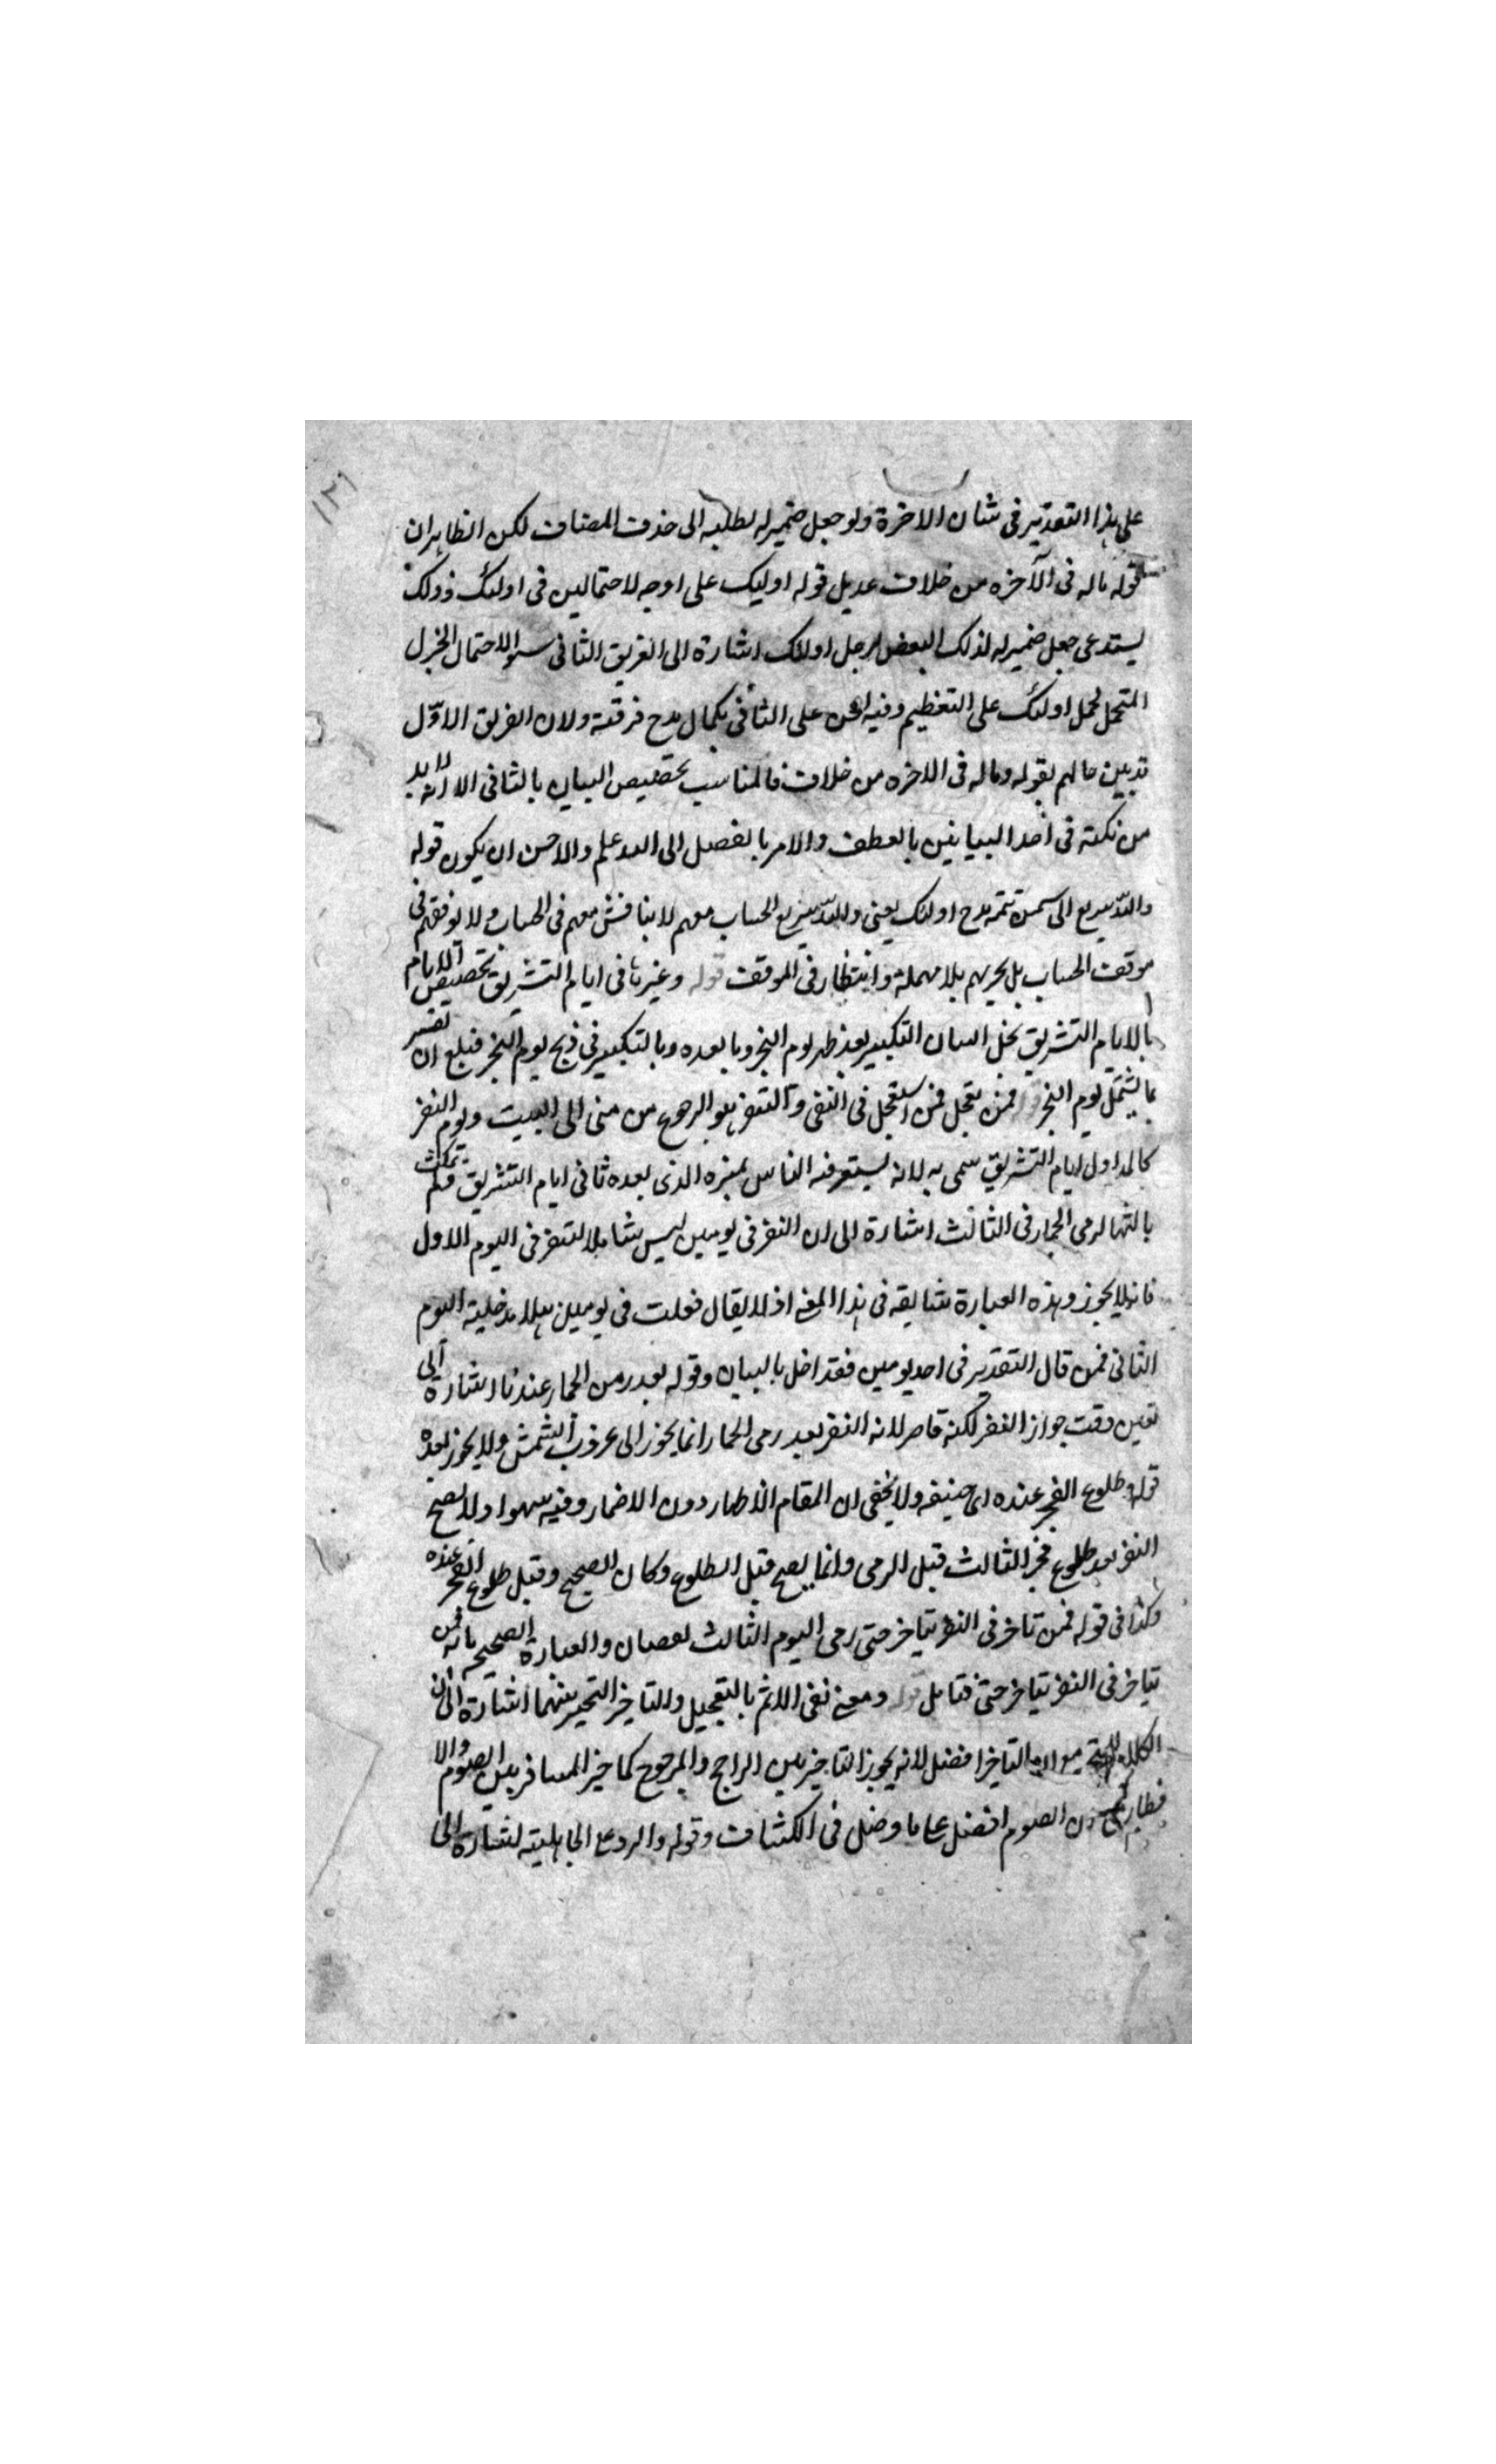 ١٢٦
على هذا التقدير فى شان الاخرة ولو جعل ضميره لطلبه الى حذف المضاف لكن الظاهر ان
قوله ماله فى الآخره من خلاق عديل قوله اوليك على اوجه لاحتمالين فى اولئك وذلك
يستدعى جعل ضمير له لذلك البعض اشارة الى الفريق الثانى
اولئك على التعظيم وفيه على الثانى بكمال مدح فرقته ولان الفريق الاوّل
قد بين حالهم بقوله وماله فى الاخره من خلاق فالمناسب تخصيص البيان بالثانى الا انه لا بد
من نكته فى أحد البيانين بالعطف والامر بالفصل الى الله علم والاحسن ان يكون قوله
والله سريع الى تتمة مدح اولئك يعنى والله سريع الحساب معهم لا يناقش معهم فى الحساب ولا يوقفهم فى
موقف الحساب بل يجريهم بلا مهملة وانتظار فى الموقف قوله وغيرها فى ايام التشريق تخصيص الايام
بالايام التشريق يخل التكبير بعد ظهر يوم النحر وما بعده وبالتكبير فى ذبح يوم النحر ان تفسر
بما يشتمل يوم النحر فمن تعجل فمن استعجل فى النفى والنفر هو الرجوع من منى الى البيت ويوم النفر
اول ايام التشريق سمى به لانه الناس الذى بعده ثانى ايام التشريق فلم يمكث
لرمى الجمار فى الثالث اشارة الى ان النفر فى يومين ليس شاملا لنفر فى اليوم الاول
فانه لا يجوز وهذه العبارة شايقه فى هذا المعنى اذ لا يقال فعلت فى يومين بلا مدخلية اليوم
الثانى فمن قال التقدير فى احد يومين فقد اخل بالبيان وقوله بعد رمى الجمار عندنا اشارة الى
تعين وقت جواز النفر لكنه قاصر لانه النفر بعد رمى الجمار انما يجوز الى غروب الشمش ولا يجوز بعده
قوله طلوع الفجر عنده اى حنيفه ولا يخفى ان المقام الاظهار دون الاضمار وفيه سهوا ولا يصح
النفر بعد طلوع فجر الثالث قبل الرمى وانما يصح قبل الطلوع وكان الصحيح وقبل طلوع الفجر عنده
وكذا فى قوله فمن تاخر فى النفر تياخر حتى رمى اليوم الثالث والعبارة الصحيحه بانه فمن
تياخر فى النفر تياخر حتى فتامل قوله ومعنى نفى الاثم بالتعجيل والتاخير التخير بينهما اشارة الى ان
التاخر افضل لانه يجوز التاخير بين الراجح والمرجوح كما خير المسافر بين الصوم والا
فطار الصوم افضل على ما وضل فى الكشاف وقوله والرد على الجاهلية اشارة الى